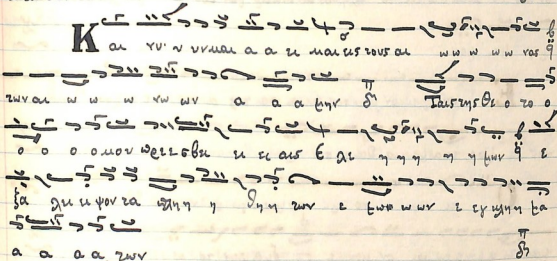 Και νυ υ υν και α α ει και εις τους αι ω ω ω ω ω νας
των αι ω ω ω νω ων α α α μην Ταις της Θε ο το ο
ο ο ο ο κου πρε ε ε σβει ει ει αις Ε λε η η η η η μον ε
ξα λει ει ψον τα πλη η η θη η των ε μω ω ων ε εγ κλη η μα
α α α α των